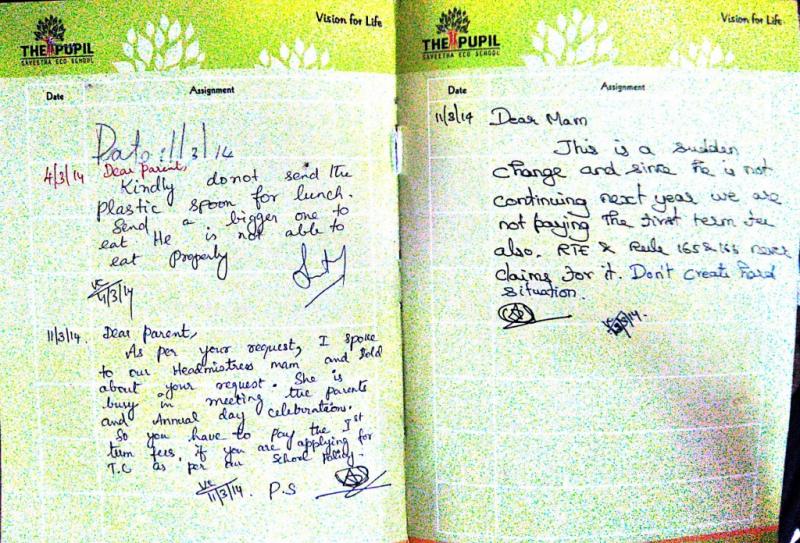 Vision for Life
THE PUPIL
SAVEETHA ECO SCHOOL
Date
Assignment
Date: 11/3/14
4/3/14 Dear Parent,
Kindly donot send the
plastic spoon for lunch.
Send a bigger one to
eat He is not able to
eat Properly
4/3/14
11/3/14. Dear Parent,
As per your request, I spoke
to our Headmistress mam and told
about your request. She is
busy in meeting the parents
and Annual day celebration.
So you have to pay the Ist
term fees. if you are applying for
T.C as per our School Policy.
11/3/14. P.S
Vision for Life
THE PUPIL
SAVEETHA ECO SCHOOL
Date
Assignment
11/3/14 Dear Mam
This is a sudden
change and since he is not
continuing next year we are
not paying the first term fee
also. RTE & Rule 165&166 never
claims for it. Don't create hard
situation.